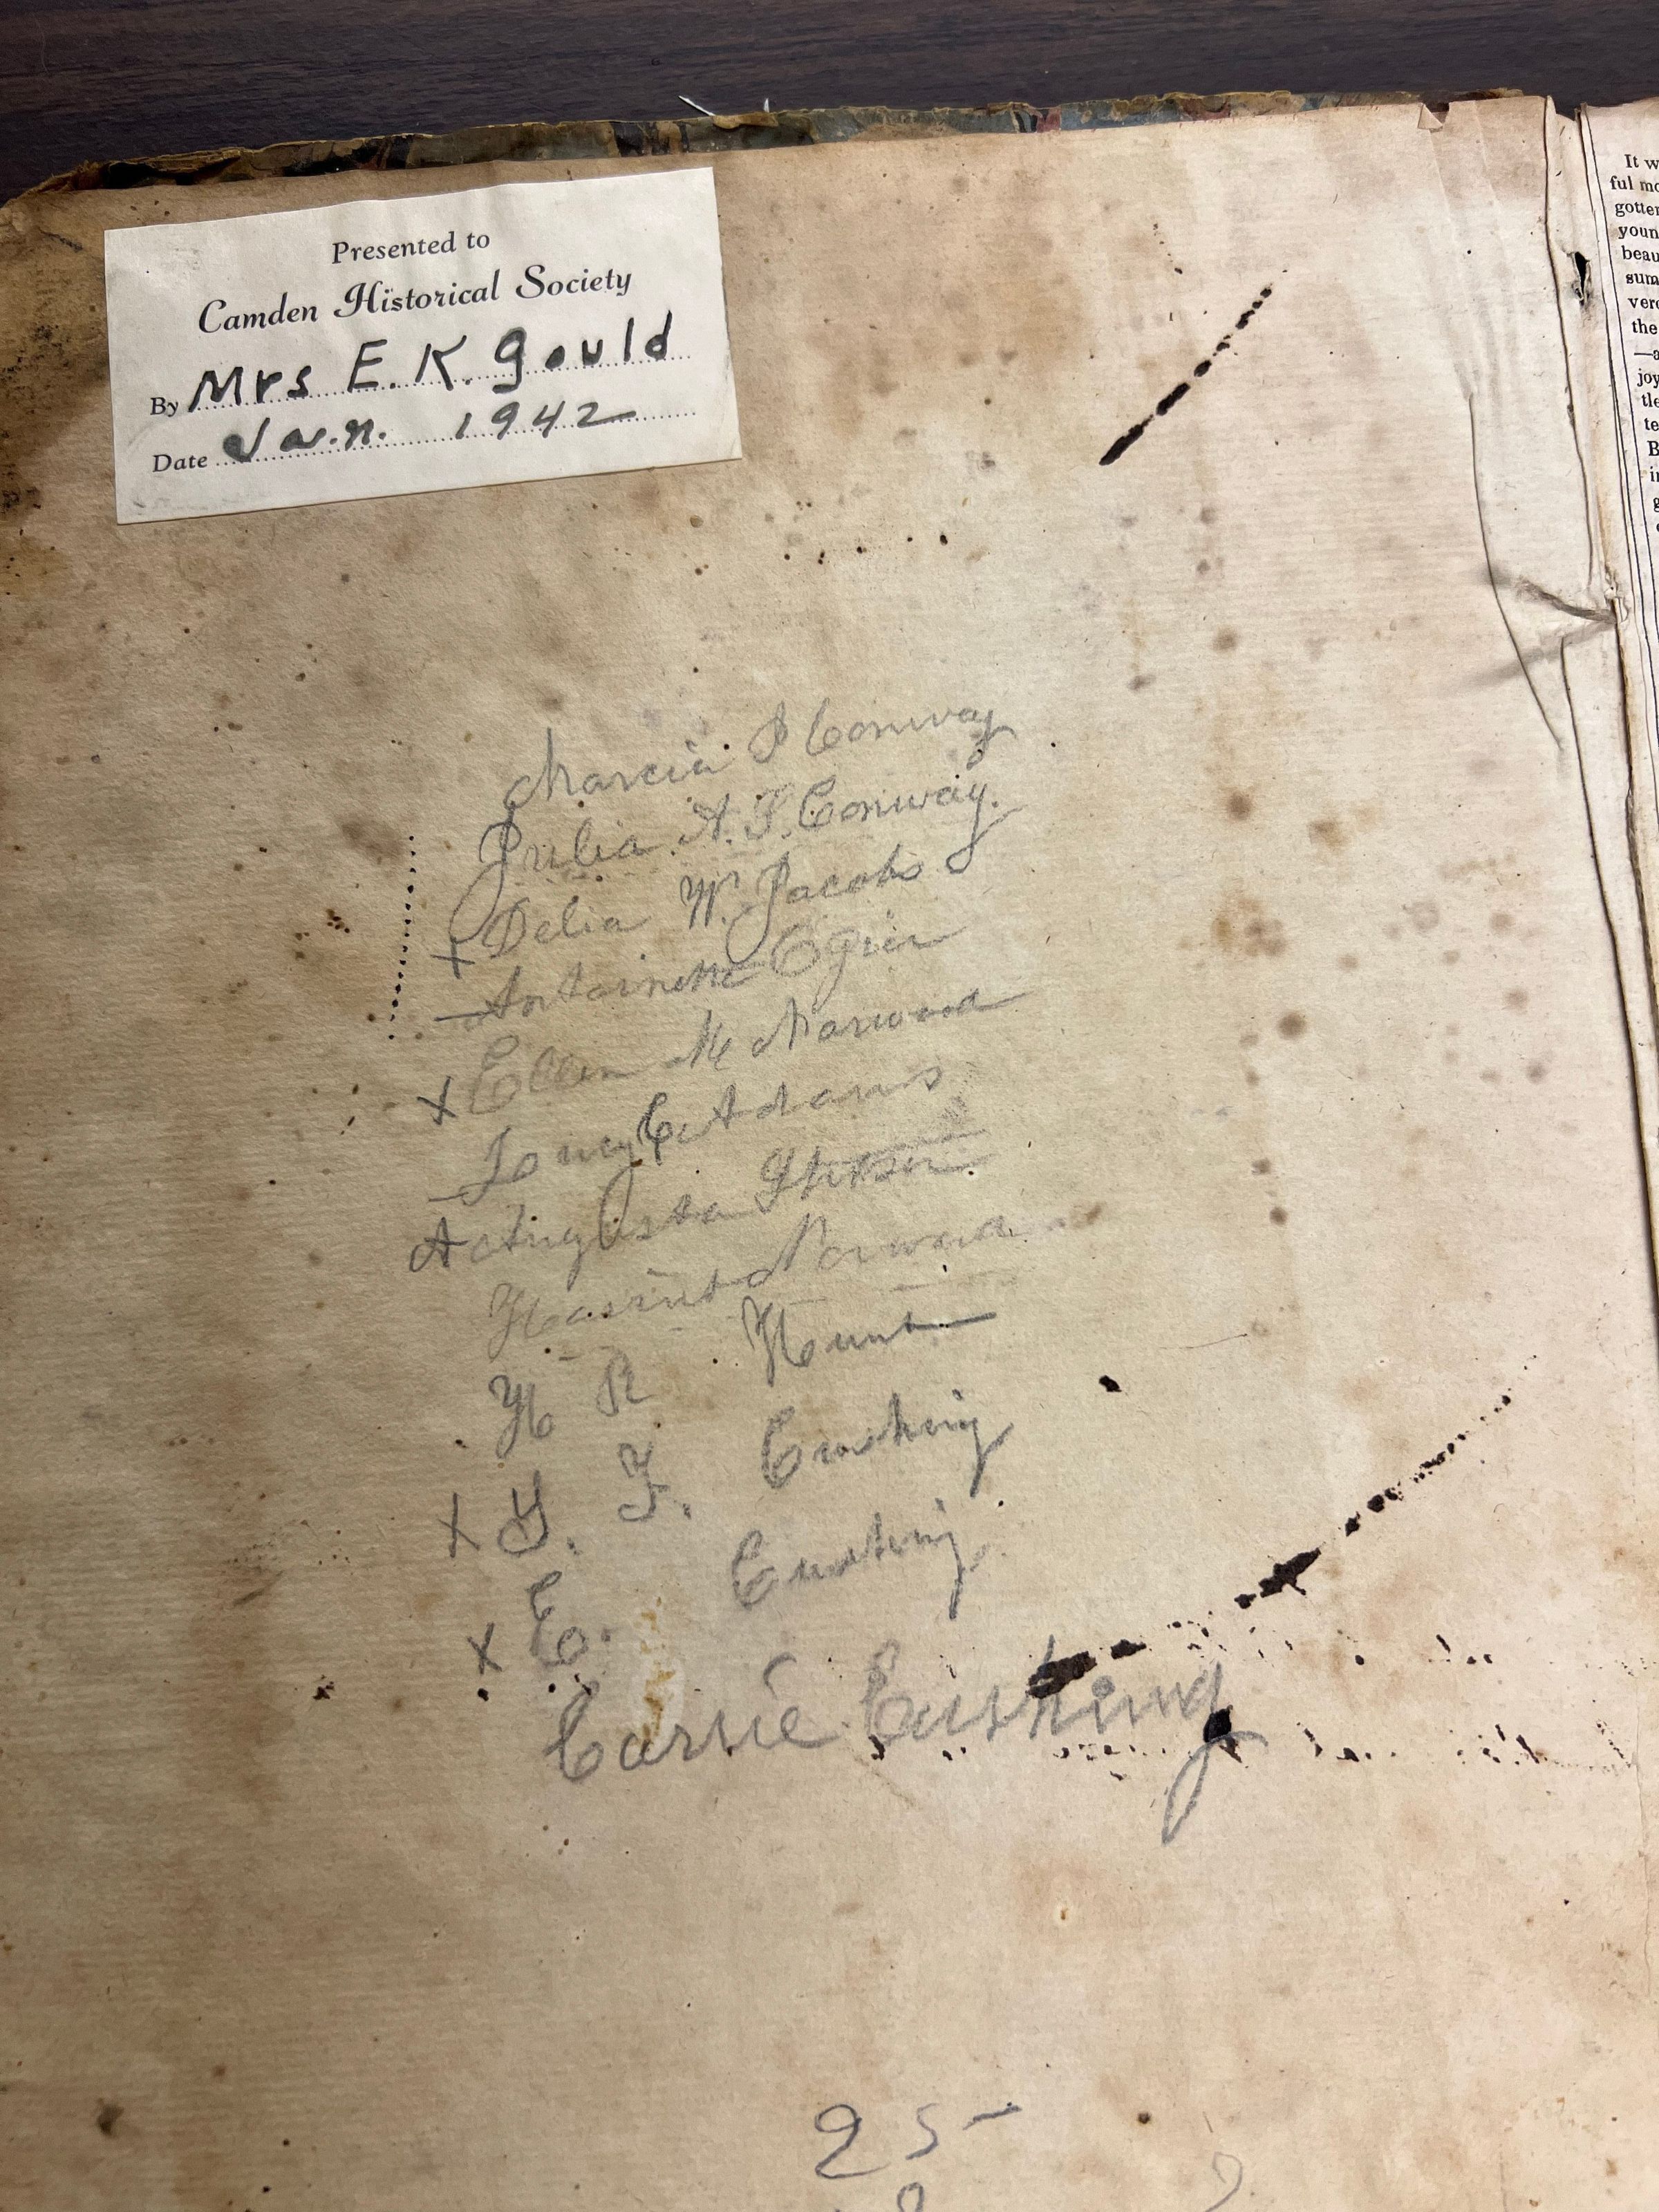 Presented to
Camden Historical Society
By Mrs E. K. Gould
Date Jan. 1942
Marcia P Conway
Julia A. S. Conway.
x Delia W. Jacobs
– Antoinette E Grier
x Ellen M Norwood
– Lucy C Adams
Augusta Stetson
Norwood
H R Hunt
x F. Cushing
x E. Cushing
Carrie Cushing
25–
It w
ful mo
gotten
youn
beau
sum
vere
the
—a
joy
tle
te
B
in
g